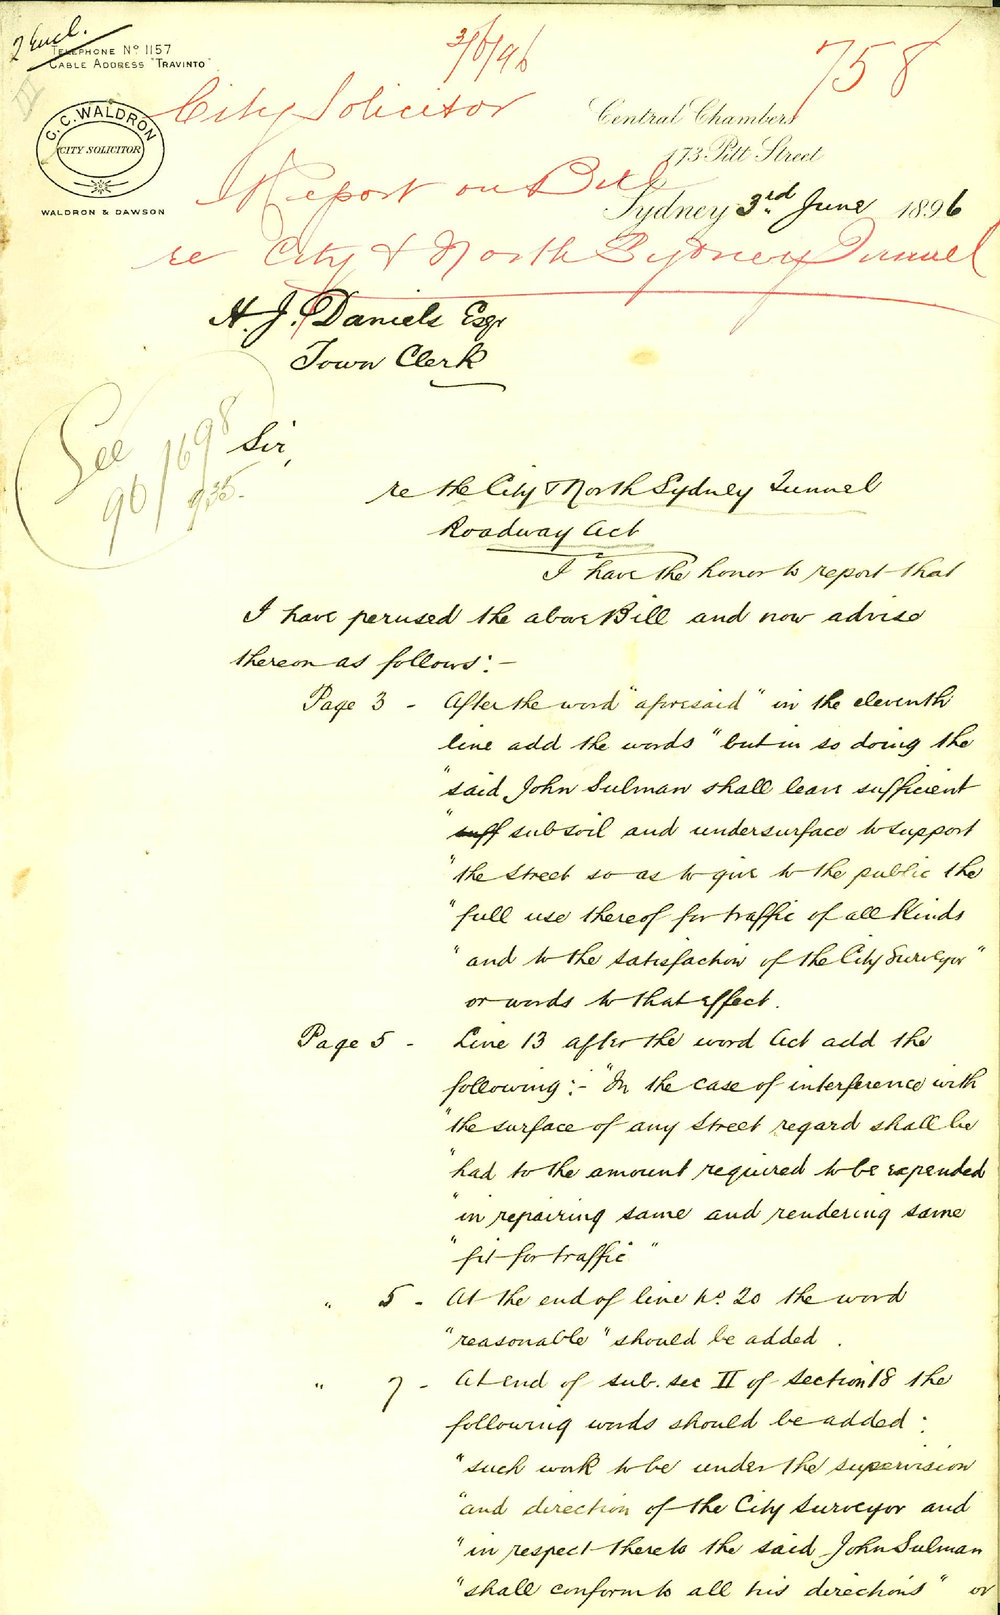 2 Encl.
TELEPHONE No 1157
CABLE ADDRESS "TRAVINTO"
3/6/96
758
City Solicitor
C. C. WALDRON
CITY SOLICITOR
WALDRON & DAWSON
Central Chambers
173 Pitt Street
Report on Bill
Sydney 3rd June 1896
re City & North Sydney Tunnel
H. J. Daniels Esqr
Town Clerk
See
96/1698
935.
Sir,
re the City & North Sydney Tunnel
Roadway Act
I have the honor to report that
I have perused the above Bill and now advise
thereon as follows:-
Page 3 - After the word "aforesaid" in the eleventh
line add the words "but in so doing the
"said John Sulman shall leave sufficient
"suff subsoil and undersurface to support
"the street so as to give to the public the
"full use thereof for traffic of all kinds
"and to the satisfaction of the City Surveyor"
or words to that effect.
Page 5 - Line 13 after the word Act add the
following:- "In the case of interference with
"the surface of any street regard shall be
"had to the amount required to be expended
"in repairing same and rendering same
"fit for traffic"
" 5 - At the end of line No. 20 the word
"reasonable" should be added.
" 7 - At end of sub. sec II of section 18 the
following words should be added:
"such work to be under the supervision
"and direction of the City Surveyor and
"in respect thereto the said John Sulman
"shall conform to all his directions" or